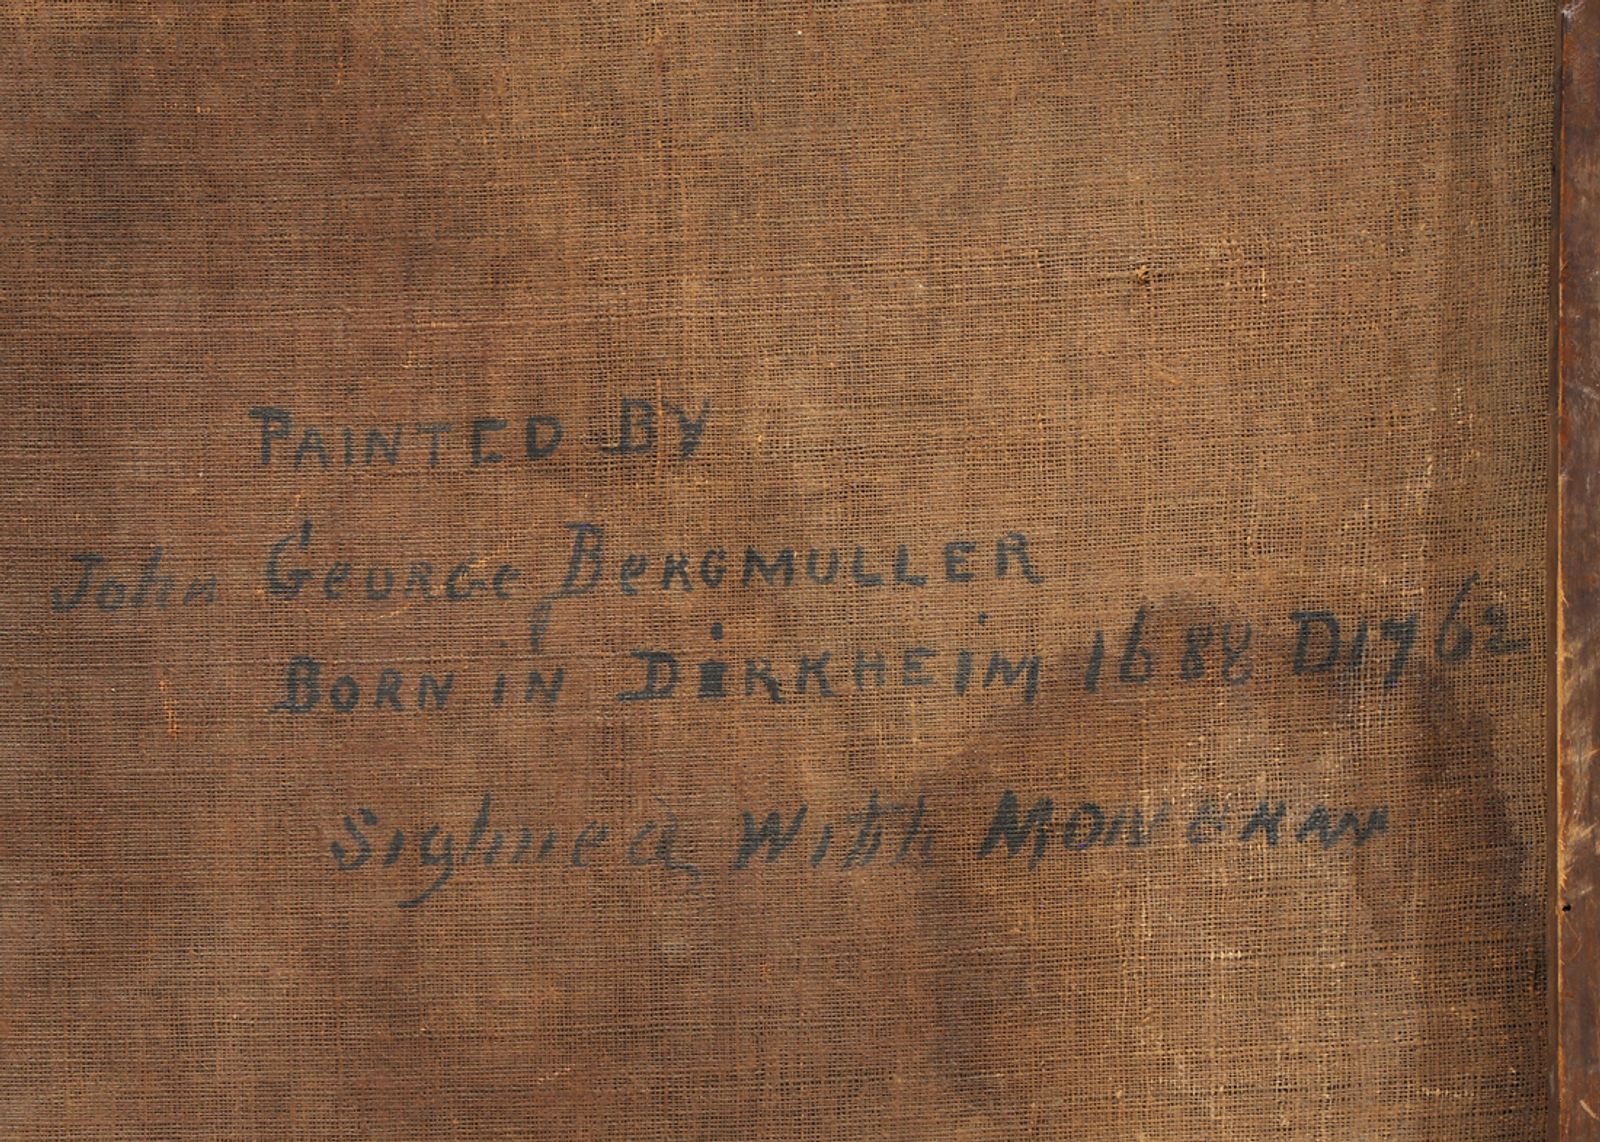 PAINTED BY
John GEORGe BERGMULLER
BORN iN DiRKHEiM 1688 D1762
Sighned With MONGHAN